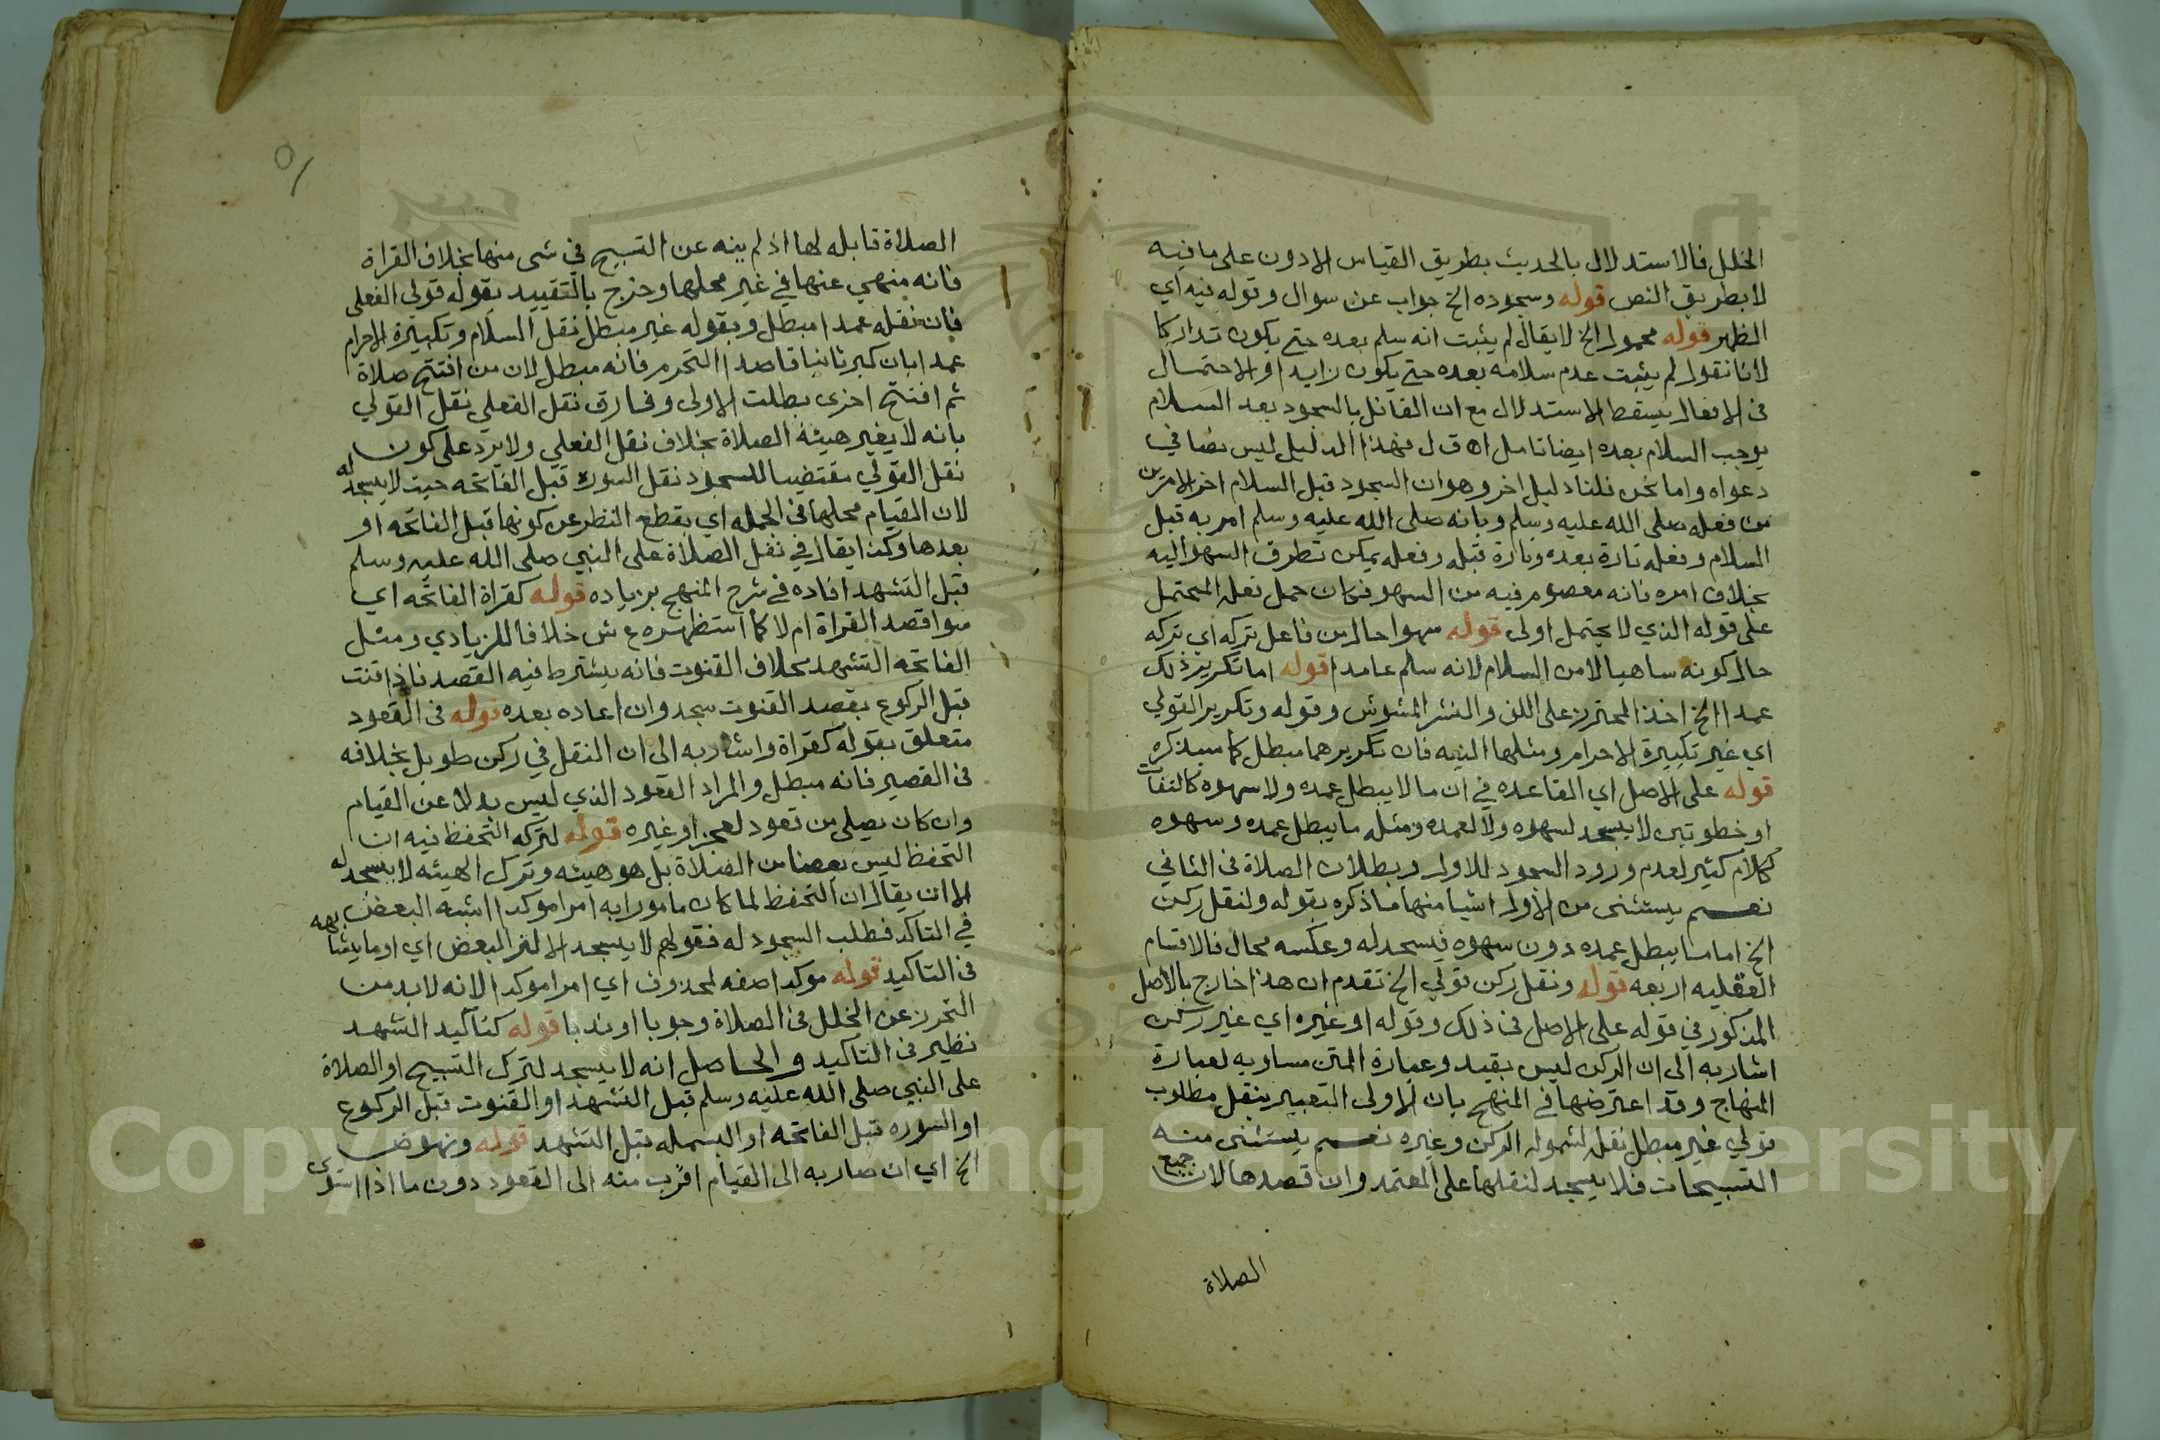 الخلل فالاستدلال بالحديث بطريق القياس الادون على ما فيه
لا بطريق النص قوله وسجوده الخ جواب عن سوال وقوله فيه اي
الظهر قوله محمول الخ لا يقال لم يثبت انه سلم بعده حتى يكون تداركا
لانا نقول لم يثبت عدم سلامه بعده حتى يكون زايدا والاحتمال
في الافعال يسقط الاستدلال مع ان القائل بالسجود بعد السلام
يوجب السلام بعده ايضا تامل اه ق ل فهذا الدليل ليس نصا في
دعواه واما نحن فلنا دليل اخر وهو ان السجود قبل السلام اخر الامرين
من فعله صلى الله عليه وسلم وبانه صلى الله عليه وسلم امر به قبل
السلام وفعله تارة بعده وتارة قبله وفعله يمكن تطرق السهو اليه
بخلاف امره فانه معصوم فيه من السهو فكان حمل فعله المحتمل
على قوله الذي لا يحتمل اولى قوله سهوا حال من فاعل تركه اي تركه
حال كونه ساهيا لا من السلام لانه سلم عامدا قوله اما تكرير ذلك
عمدا الخ اخذ المحترز على اللف والنشر المشوش وقوله وتكرير القولي
اي غير تكبيرة الاحرام ومثلها النيه فان تكريرهما مبطل كما سيذكره
قوله على الاصل اي القاعده في ان ما لا يبطل عمده ولا سهوه كالتفات
او خطوتين لا يسجد لسهوه ولا لعمده ومثله ما يبطل عمده وسهوه
ككلام كثير لعدم ورود السجود للاول وبطلان الصلاة في الثاني
نعم يستثنى من الاول اشيا منها ما ذكره بقوله ولنقل ركن
الخ اما ما يبطل عمده دون سهوه فيسجد له وعكسه محال فالاقسام
العقليه اربعه قوله ونقل ركن قولي الخ تقدم ان هذا خارج بالاصل
المذكور في قوله على الاصل في ذلك وقوله او غيره اي غير ركن
اشار به الى ان الركن ليس بقيد وعبارة المتن مساويه لعبارة
المنهاج وقد اعترضها في المنهج بان الاولى التعبير بنقل مطلوب
قولي غير مبطل نقله لشموله الركن وغيره نعم يستثنى منه
التسبيحات فلا يسجد لنقلها على المعتمد وان قصدها لان جميع
الصلاة
الصلاة قابله لها اذ لم ينه عن التسبيح في شي منها بخلاف القراة
فانه منهي عنها في غير محلها وخرج بالتقييد بقوله قولي الفعلي
فان نقله عمدا مبطل وبقوله غير مبطل نقل السلام وتكبيرة الاحرام
عمدا بان كبر ثانيا قاصدا التحرم فانه مبطل لان من افتتح صلاة
ثم افتتح اخرى بطلت الاولى وفارق نقل الفعلي نقل القولي
بانه لا يغير هيئة الصلاة بخلاف نقل الفعلي ولا يرد على كون
نقل القولي مقتضيا للسجود نقل السورة قبل الفاتحه حيث لا يسجد له
لان القيام محلها في الجمله اي بقطع النظر عن كونها قبل الفاتحه او
بعدها وكذا يقال في نقل الصلاة على النبي صلى الله عليه وسلم
قبل التشهد افاده في شرح المنهج بزياده قوله كقراة الفاتحه اي
سوا قصد القراة ام لا كما استظهره ع ش خلافا للزيادي ومثل
الفاتحه التشهد بخلاف القنوت فانه يشترط فيه القصد فاذا قنت
قبل الركوع بقصد القنوت سجد وان اعاده بعده قوله في القعود
متعلق بقوله كقراة واشار به الى ان النقل في ركن طويل بخلافه
في القصير فانه مبطل والمراد القعود الذي ليس بدلا عن القيام
وان كان يصلي من قعود لعجز او غيره قوله لتركه التحفظ فيه ان
التحفظ ليس بعضا من الصلاة بل هو هيئه وترك الهيئه لا يسجد له
الا ان يقال ان التحفظ لما كان مامورا به امرا موكدا اشبه البعض
في التاكد فطلب السجود له فقولهم لا يسجد الا لترك البعض اي او ما يشابهه
في التاكيد قوله موكدا صفه لمحذوف اي امرا موكدا لانه لا بد من
التحرز عن الخلل في الصلاة وجوبا او ندبا قوله كتاكيد التشهد
نظير في التاكيد والحاصل انه لا يسجد لترك التسبيح او الصلاة
على النبي صلى الله عليه وسلم قبل التشهد او القنوت قبل الركوع
او السوره قبل الفاتحه او البسمله قبل التشهد قوله ونهوض
الخ اي ان صار به الى القيام اقرب منه الى القعود دون ما اذا استوى